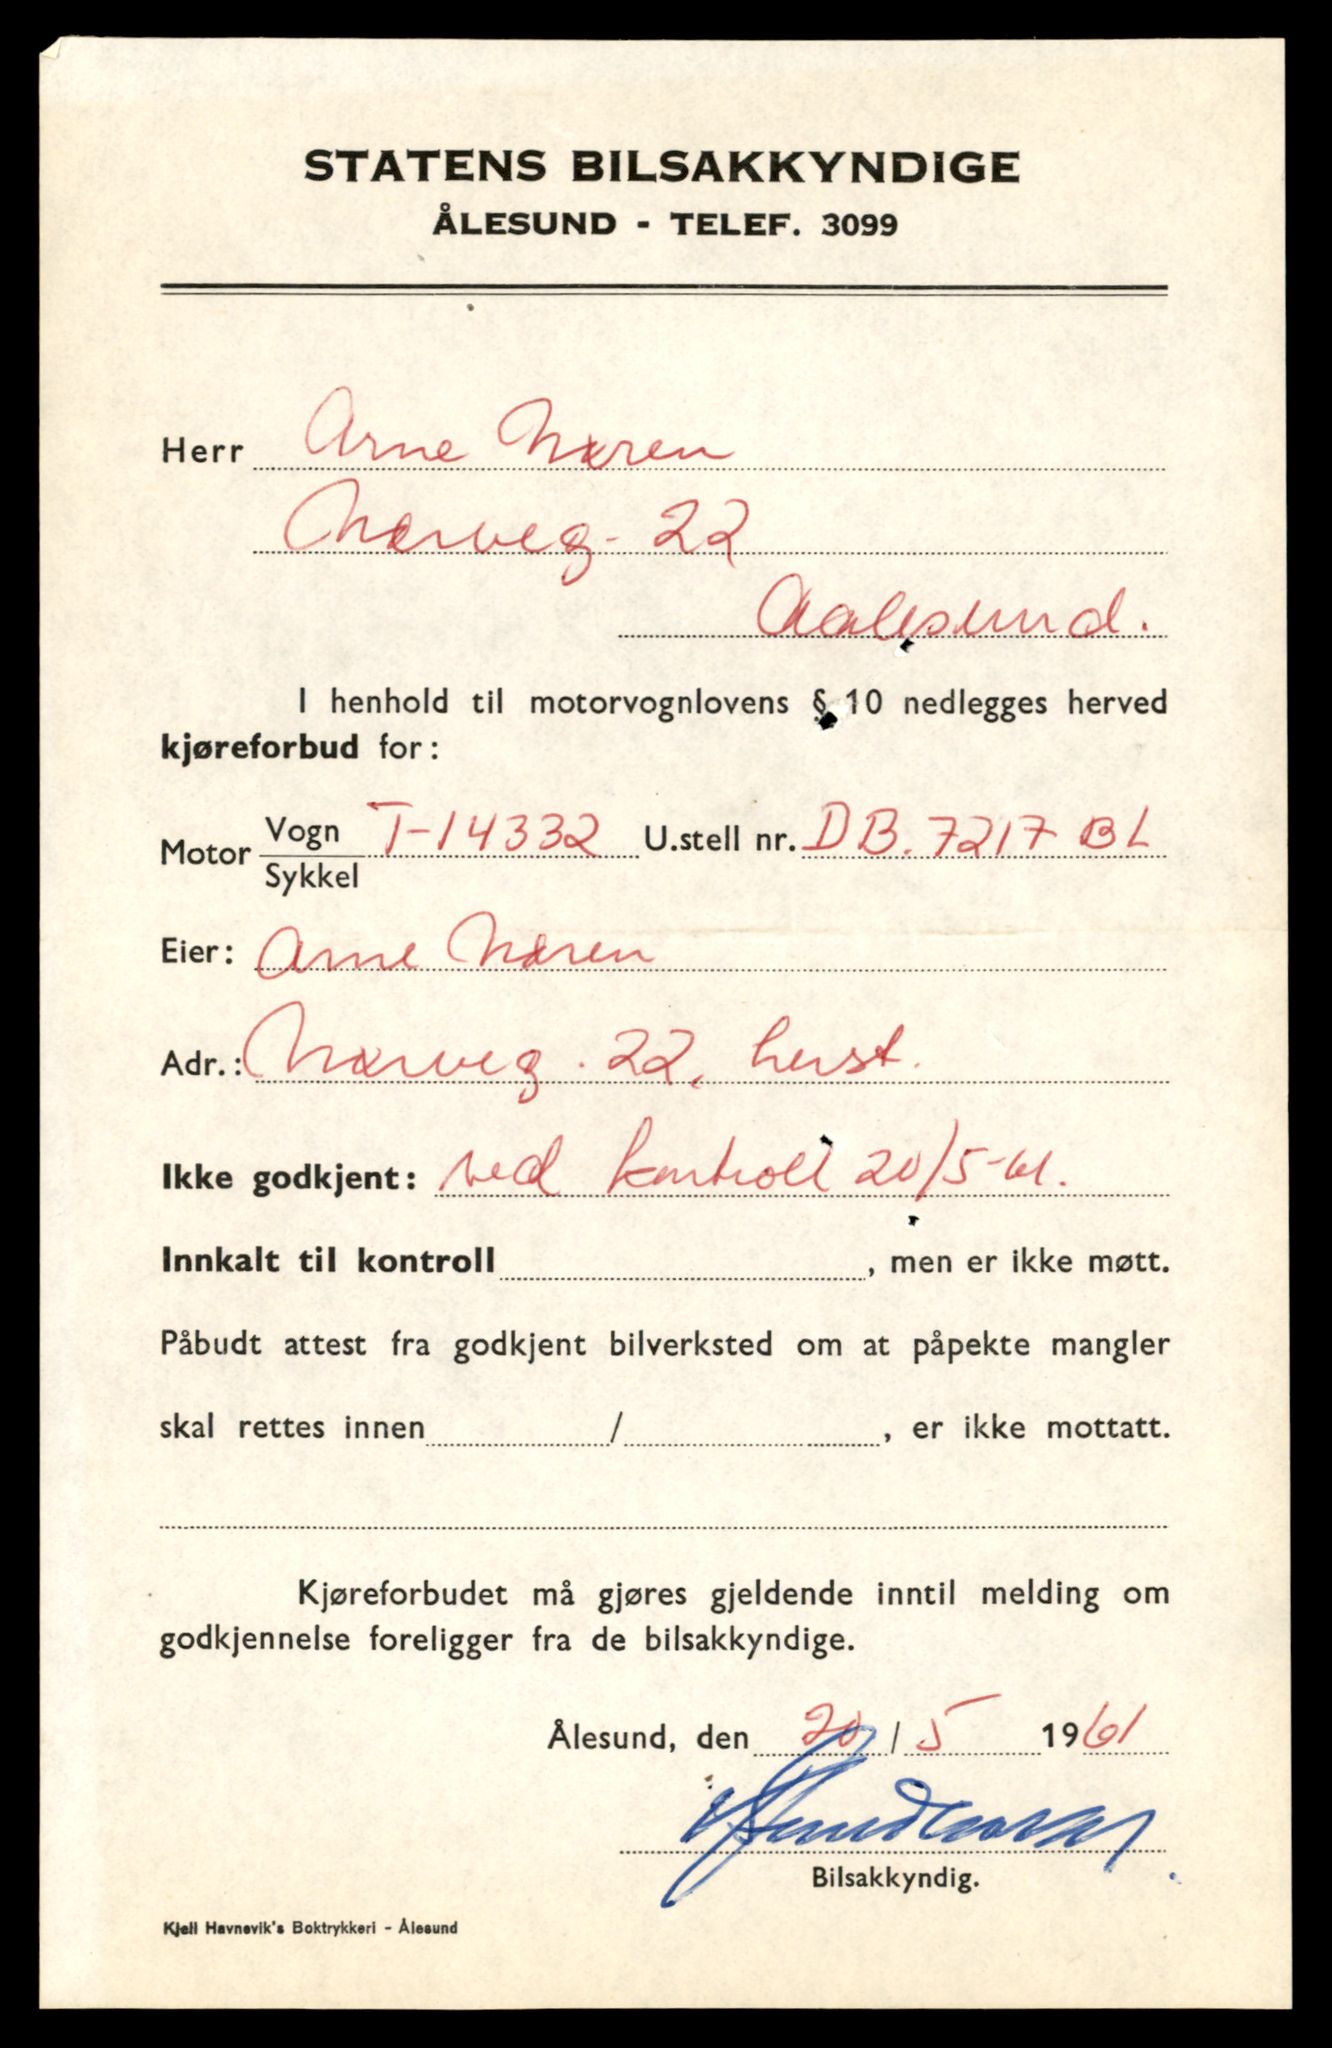 STATENS BILSAKKYNDIGE
ÅLESUND - TELEF. 3099
Herr Arne Næren
Nørveg. 22
Aalesund.
I henhold til motorvognlovens § 10 nedlegges herved
kjøreforbud for:
Motor Vogn T-14332 U.stell nr. DB. 7217 BL
Sykkel
Eier: Arne Næren
Adr.: Nørveg. 22, herst.
Ikke godkjent: ved kontroll 20/5-61.
Innkalt til kontroll , men er ikke møtt.
Påbudt attest fra godkjent bilverksted om at påpekte mangler
skal rettes innen / , er ikke mottatt.
Kjøreforbudet må gjøres gjeldende inntil melding om
godkjennelse foreligger fra de bilsakkyndige.
Ålesund, den 20 / 5 1961
Bilsakkyndig.
Kjell Havnevik's Boktrykkeri - Ålesund